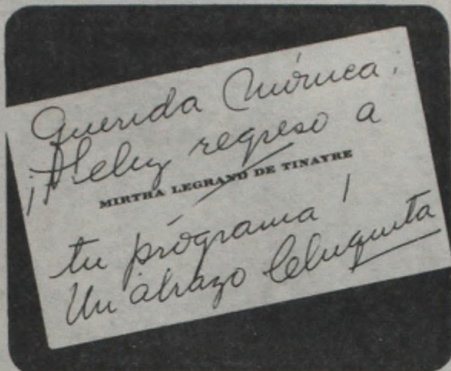 Querida Mónica,
¡Feliz regreso a
MIRTHA LEGRAND DE TINAYRE
tu programa!
Un abrazo Chiquita